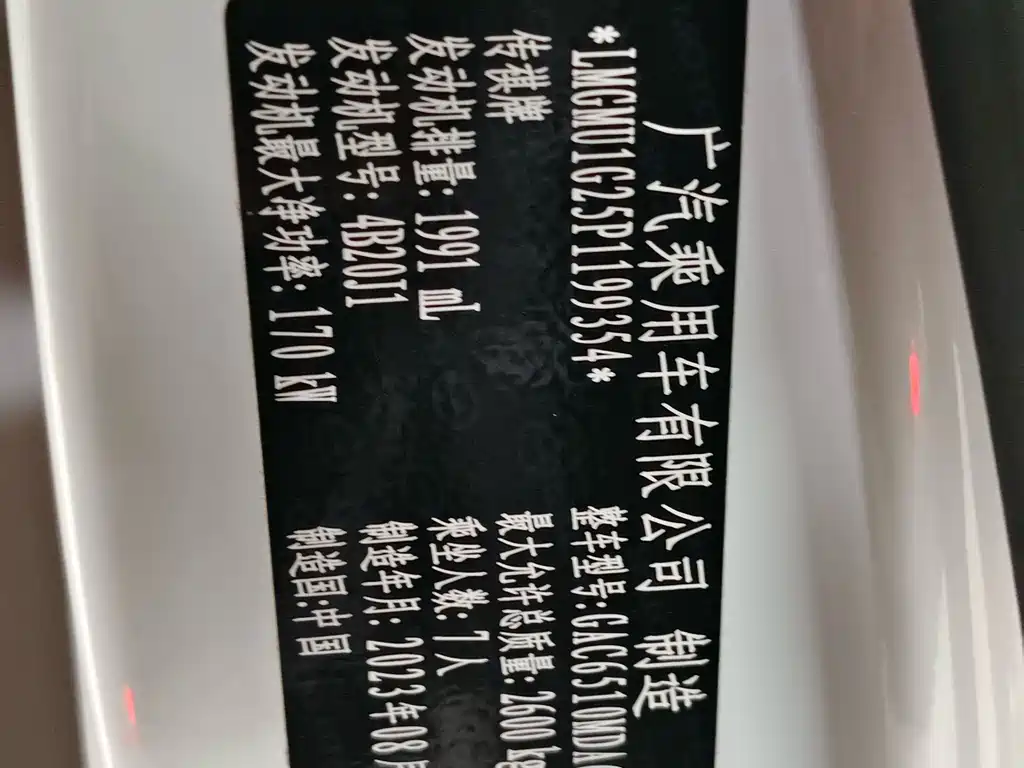 广汽乘用车有限公司 制造
*LMGMU1G25P1199354* 整车型号:GAC6510NDA
传祺牌 最大允许总质量:2600 kg
发动机排量:1991 mL 乘坐人数:7人
发动机型号:4B20J1 制造年月:2023年08月
发动机最大净功率:170 kW 制造国:中国